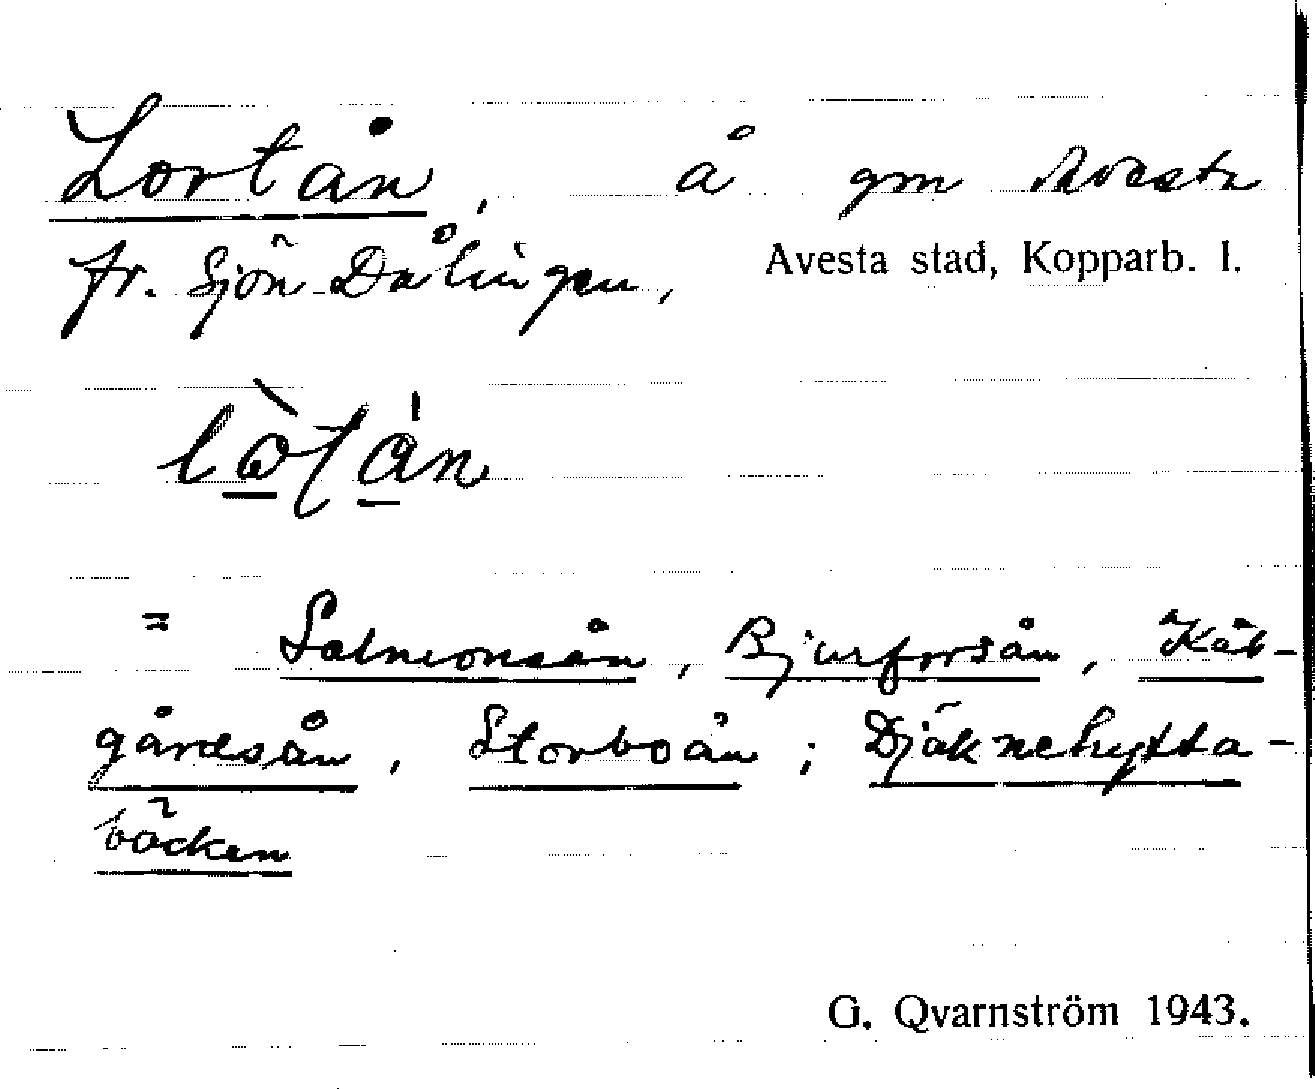 Lortån, å gm Avesta
fr. Sjön Dålingen,
Avesta stad, Kopparb. l.
= Salmonsån, Bjurforsån, Kåt-
gårdsån, Storboån; Djäknehytta-
bäcken
G. Qvarnström 1943.